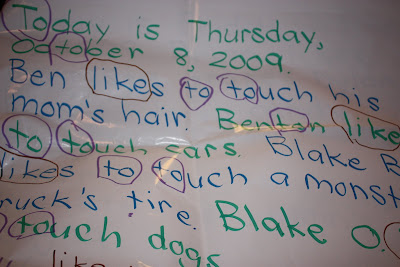 Today is Thursday,
October 8, 2009.
Ben likes to touch his
mom's hair. Benton like
to touch ears. Blake B
ikes to touch a monst
ruck's tire. Blake O.
touch dogs.
like